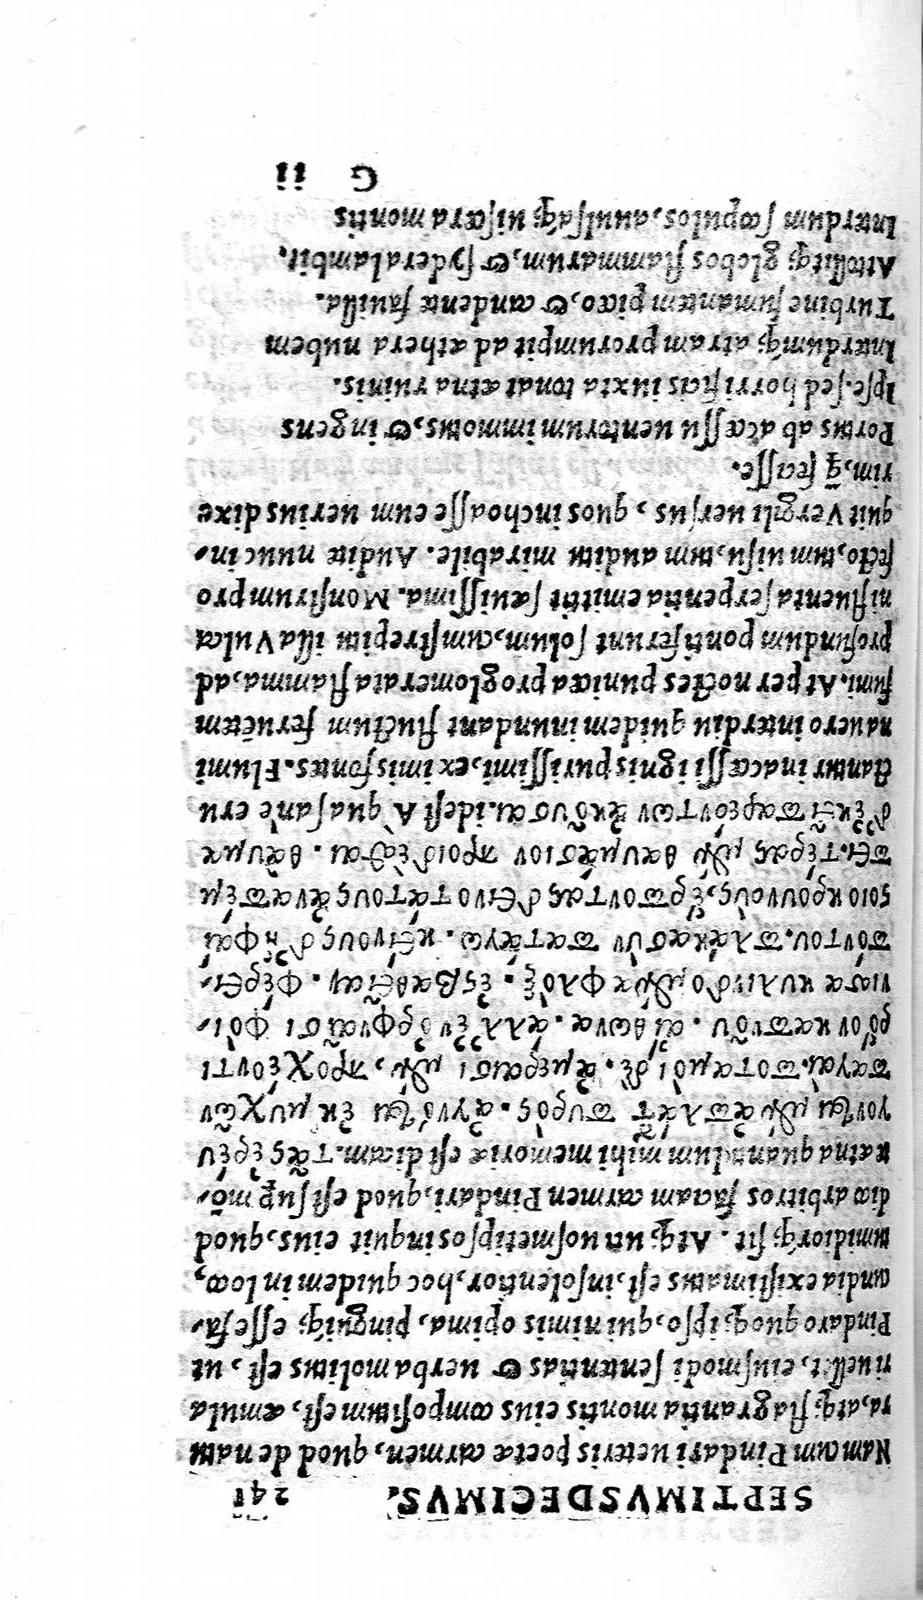 SEPTIMVSDECIMVS. 241
Nam cum Pindari ueteris poetæ carmen, quod de natu
ra, atq; flagrantia montis eius compositum est, æmula
ri uellet, eiusmodi sententias & uerba molitus est, ut
Pindaro quoq; ipso, qui nimis opima, pinguiq; esse fa-
cundia existimatus est, insolentior, hoc quidem in loco,
tumidiorq́; sit. Atq; uti uosmetipsos inquit eius, quod
dico arbitros faciam carmen Pindari, quod est sup mō-
te Aetna quantulum mihi memoriæ est dicam. τᾶς ἐρέυ
γονται μὲν ἀπλάτȣ πυρὸς. ἁγνόταται ἐκ μυχῶν
παγαί. ποταμὸι δὲ. ἁμέραισι μὲν, προχέοντι
ῥόον καπνοῦ. αἴθωνα. ἀλλ' ἐν ὄρφναισι φοί-
νισσα κυλινδομένα φλόξ. ἐς βαθεῖαν. φέρει-
πόντου. πλάκα σὺν πατάγω. κεῖνους δ' ἡφαί
στοιο κρουνοὺς, ἑρποντας δεινοτάτους ἀναπέμ
πει. τέρας μὲν θαυμάσιον προσιδέσθαι. θαῦμα
δ' ἐκ παρεόντων ἀκοῦσαι. idest A' qua sanè eru
ctantur inaccessi ignis purissimi, ex imis fontes. Flumi
na uero interdiu quidem inundant fluctum feruētem
fumi. At per noctes punicea proglomerata flamma, ad
profundum ponti ferunt solum, cum strepitu illa Vulca
ni fluenta serpentia emittit sæuissima. Monstrum pro
fecto, tum uisu, tum auditu mirabile. Audite nunc in-
quit Vergilii uersus, quos inchoasse eum uerius dixe
rim, q̄ fecisse.
Portus ab accessu uentorum immotus, & ingens
Ipse. sed horrificis iuxta tonat ætna ruinis.
Interdumq́; atram prorumpit ad æthera nubem
Turbine fumantem piceo, & candente fauilla.
Attollitq; globos flammarum, & sydera lambit.
Interdum scopulos, auulsaq́; uiscera montis
G ii